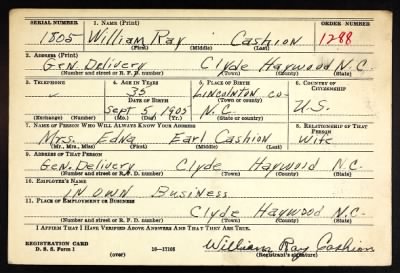 SERIAL NUMBER 1. NAME (Print) ORDER NUMBER
1805 William Ray Cashion 1288
(First) (Middle) (Last)
2. ADDRESS (Print)
Gen. Delivery Clyde Haywood N.C.
(Number and street or R. F. D. number) (Town) (County) (State)
3. TELEPHONE 4. AGE IN YEARS 5. PLACE OF BIRTH 6. COUNTRY OF CITIZENSHIP
35 Lincolnton Co-
DATE OF BIRTH (Town or county)
Sept 5 1905 N.C. U.S.
(Exchange) (Number) (Mo.) (Day) (Yr.) (State or country)
7. NAME OF PERSON WHO WILL ALWAYS KNOW YOUR ADDRESS 8. RELATIONSHIP OF THAT PERSON
Mrs. Edna Earl Cashion Wife
(Mr., Mrs., Miss) (First) (Middle) (Last)
9. ADDRESS OF THAT PERSON
Gen. Delivery Clyde Haywood N.C.
(Number and street or R. F. D. number) (Town) (County) (State)
10. EMPLOYER'S NAME
in own Business
11. PLACE OF EMPLOYMENT OR BUSINESS
Clyde Haywood N.C-
(Number and street or R. F. D. number) (Town) (County) (State)
I AFFIRM THAT I HAVE VERIFIED ABOVE ANSWERS AND THAT THEY ARE TRUE.
REGISTRATION CARD
D. S. S. Form 1 (over) 16-17105 William Ray Cashion
(Registrant's signature)